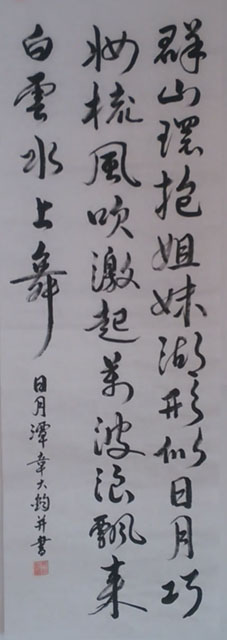 群山環抱姐妹湖形似日月巧
妝梳風吹激起万波浪飄來
白雲水上舞
日月潭 章大鈞并書